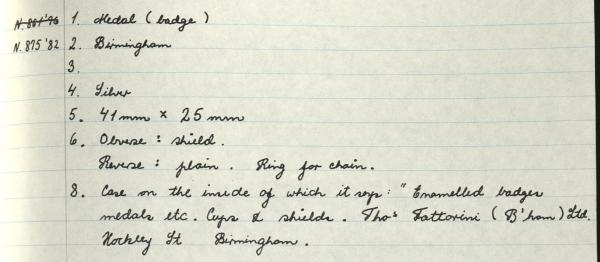 N. 881'96 1. Medal (badge)
N. 875'82 2. Birmingham
3.
4. Silver
5. 41mm × 25mm
6. Obverse : shield.
Reverse : plain. Ring for chain.
8. Case on the inside of which it says: " Enamelled badges
medals etc. Cups & shields. Thos Fattorini (B'ham) Ltd.
Hockley St Birmingham.